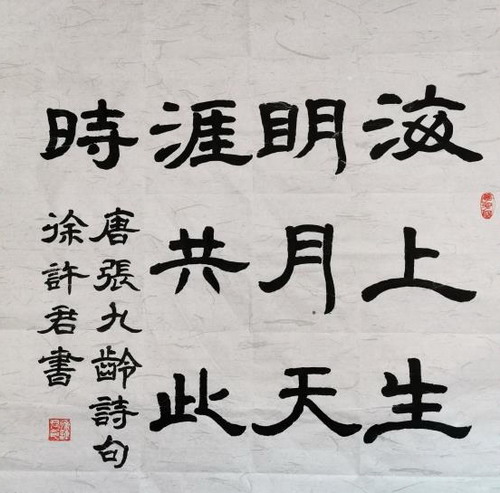 海上生
明月天
涯共此
時
唐張九齡詩句
徐許君書